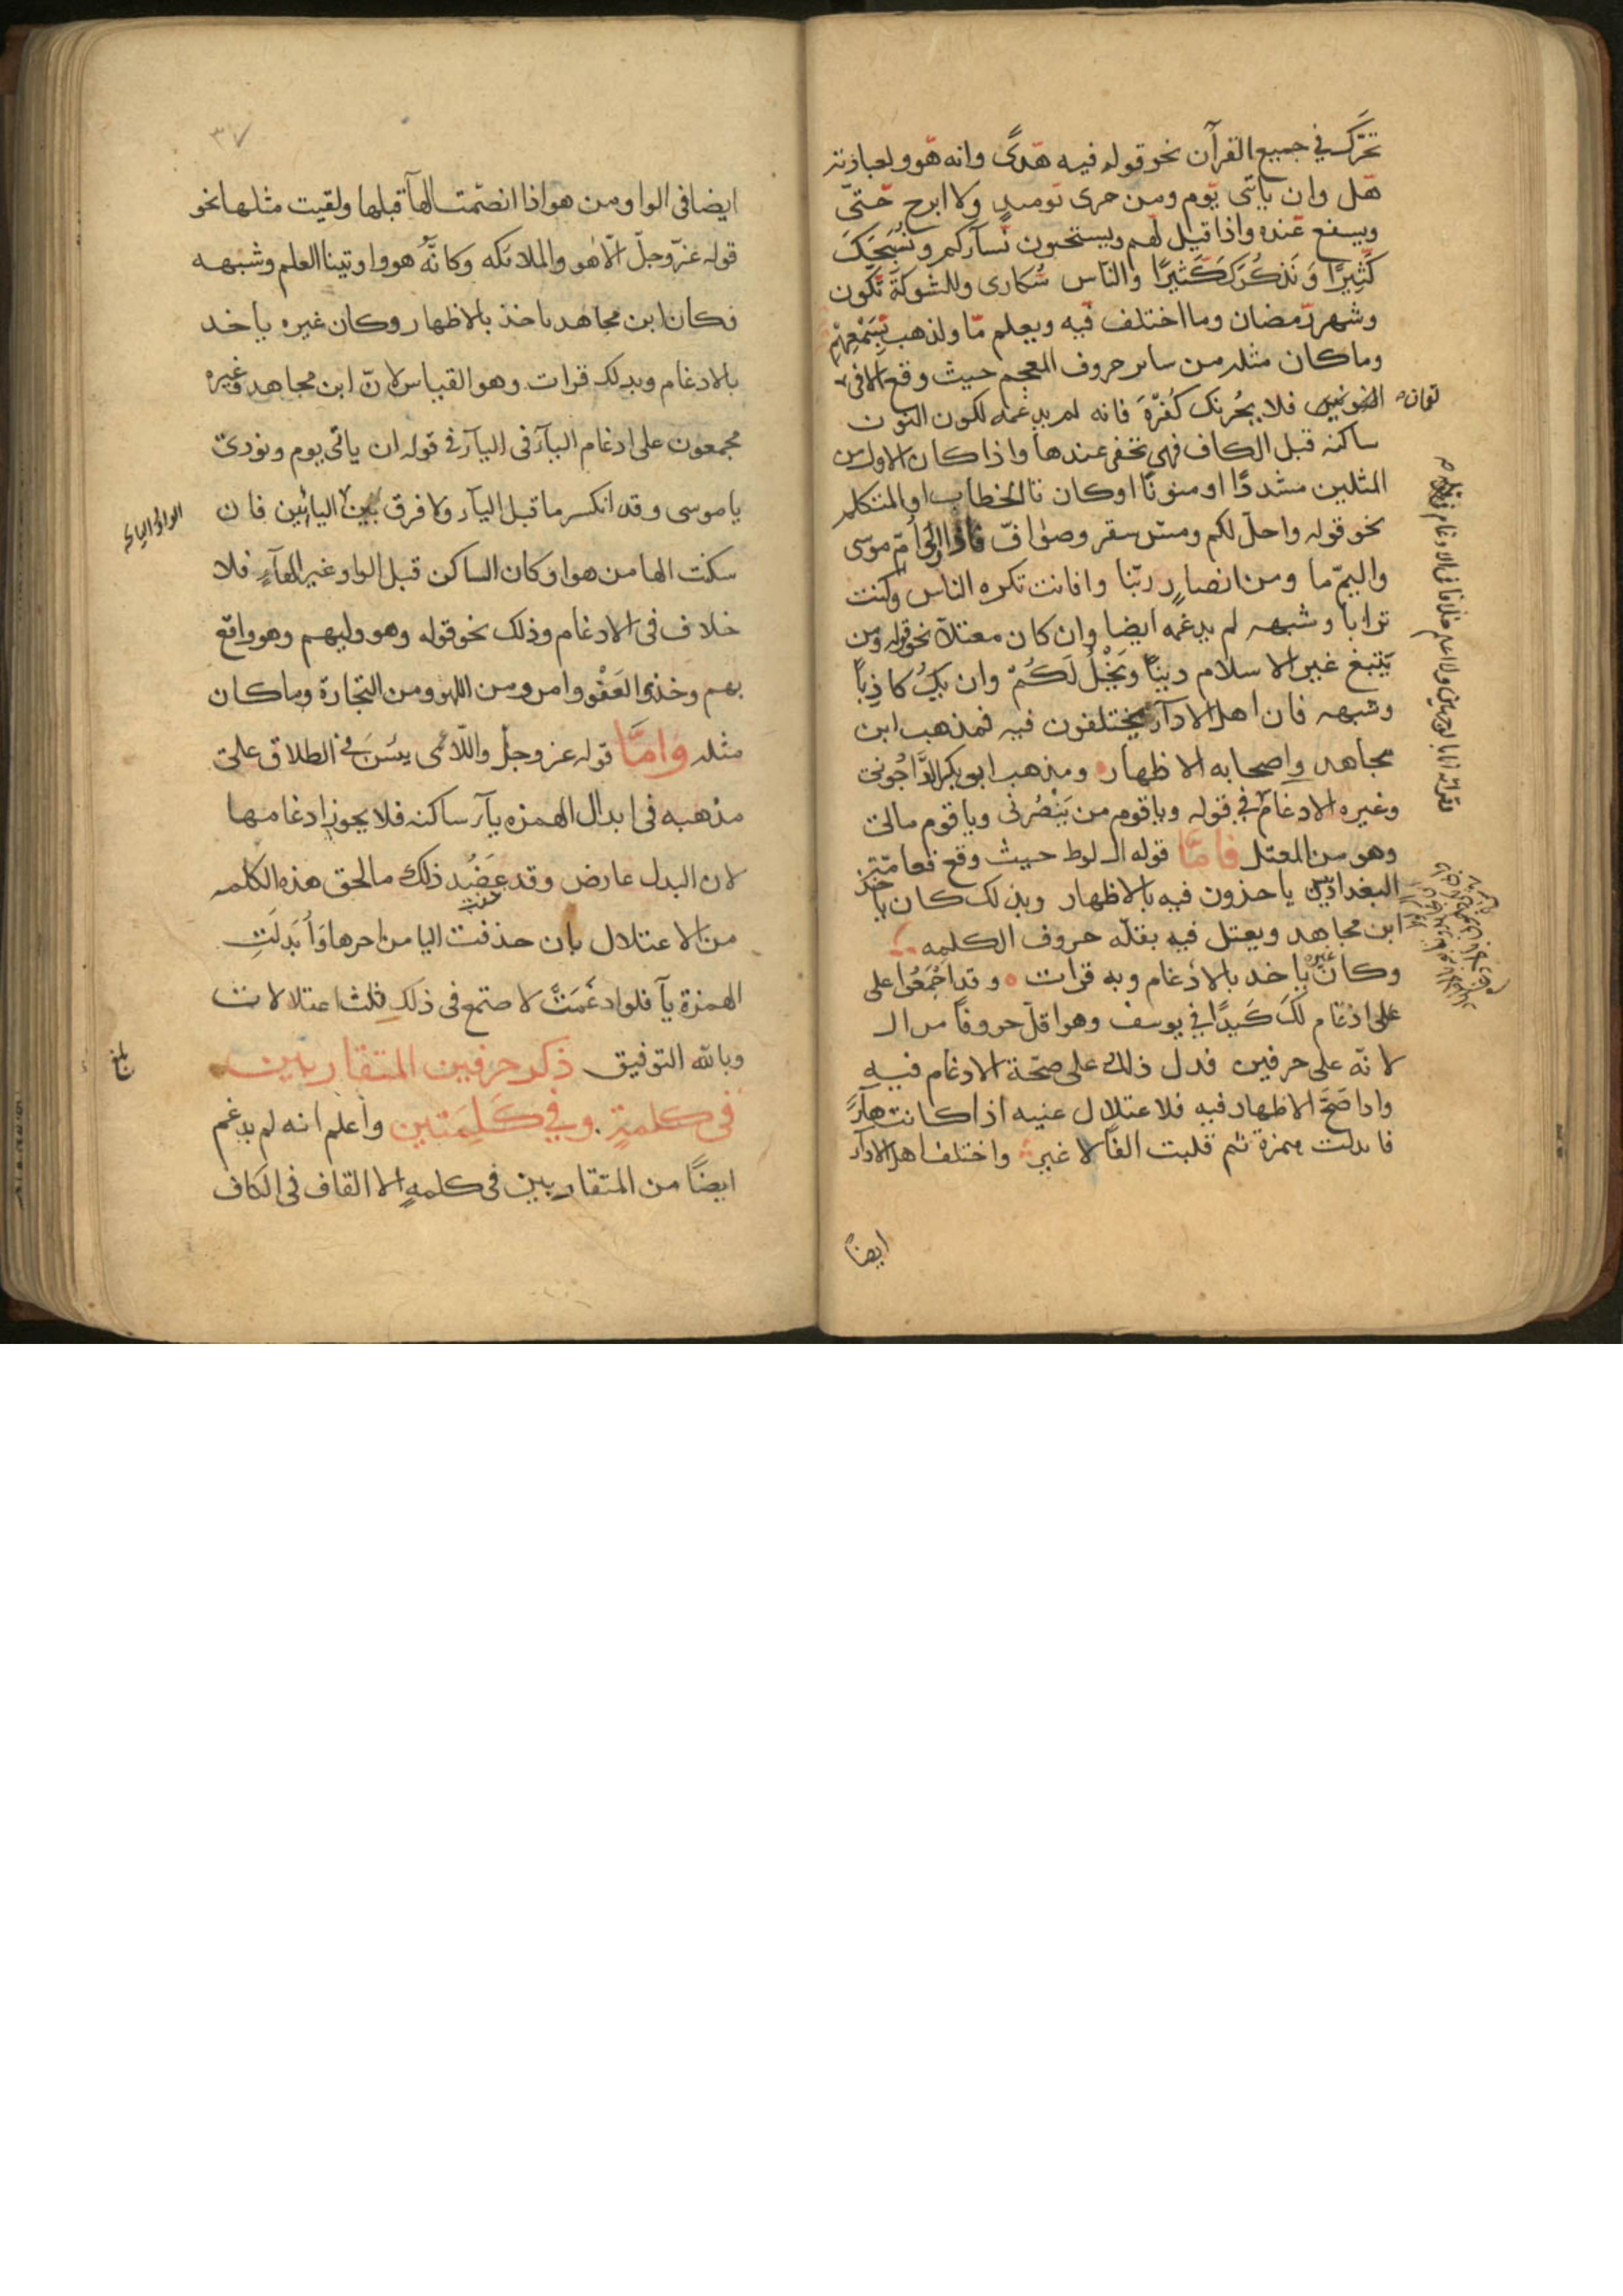 تحرّك في جميع القرآن نحو قوله فيه هّدًى وانه هّو ولعبادته
هّل وان ياتى يّوم ومن خزى يّومىذ ولا ابرح حّتّى
ويسفع عّنده واذا قيل لّهم ويستحيون نّسآركم ونُسَبّحَكَ
كَّثِيرًا وَنَذكُرَكَ كَّثيرًا والناس سُّكارى وللشوكة تّكون
وشهر رّمضان وما اختلف فّيه ويعلم مّا ولذهب بِّسَمْعِهِم
وما كان مثله من ساىر حروف المعجم حيث وقع الا فى
لقمان فلا يحزنك كُفرُهُ فانه لم يدغمه لكون النون
ساكنه قبل الكاف فهى تخفى عندها واذا كان الاول من
المثلين مشددًا او منونًا او كان تا الخطاب او المتكلم
نحو قوله واحلّ لكم ومسّ سقر وصوٰافّ فاذا امّ موسى
واليمّ ما ومن انصارٍ ربّنا وافانت تكره الناس وكنت
ترابا وشبهه لم يدغمه ايضا وان كان معتلاّ نحو قوله ومن
يَبتغ غير الاسلام دينًا ويَخْلُ لَكُمْ وان يكُ كاذِبًا
وشبهه فان اهل الادآر يختلفون فيه فمذهب ابن
مجاهد واصحابه الاظهار ومذهب ابى بكر الدَّاجُونى
وغيره الادغام في قوله ويا قوم من يَنْصُرنى ويا قوم مالى
وهو من المعتل فامَّا قوله ال لوط حيث وقع فعامّة
البغداديين ياخذون فيه بالاظهار وبذلك كان ياخذ
ابن مجاهد ويعتل فيه بقلّه حروف الكلمه
وكان غيره ياخد بالادغام وبه قرات وقد اجْمَعُوا على
على ادغام لكَ كَيدًا في يوسف وهو اقلّ حروفًا من ال
لانّه على حرفين فدل ذلك على صحّة الادغام فيهِ
واذا صَحَّ الاظهار فيه فلاعتلال عنيه اذ كانت هآرً
فابدلت همزة ثم قلبت الفًا لا غير واختلف اهل الادآر
ايضاً
٣٧
ايضا فى الواو من هو اذا انضّمت الهآ قبلها ولقيت مثلها نحو
قوله عزّ وجلّ الّا هو والملائكه وكانَّهُ هو واوتينا العلم وشبهه
فكان ابن مجاهد ياخذ بالاظهار وكان غيره ياخد
بالادغام وبدلك قرات وهو القياس لانّ ابن مجاهد وغيره
مجمعون على ادغام اليآر فى اليآر في قوله ان ياتى يوم ونودىَ
يا موسى وقد انكسر ما قبل اليآر ولا فرق بين اليائين فان
سكنت الها من هو او كان الساكن قبل الواو غير الهآءِ فلا
خلاف فى الادغام وذلك نحو قوله وهو وليهم وهو واقع
بهم وخذ العَفْو وامر ومن اللهو ومن التجارة وما كان
مثله وَامَّا قوله عز وجل واللّائى يئسَن في الطلاق على
مذهبه فى ابدال الهمزه يآر ساكنه فلا يجوز ادغامها
لان البدل عارض وقد عَضُد ذلك ما لحق هذه الكلمه
من الاعتلال بان حذفت اليا من اخرها وَأُبدلَتِ
الهمزة يآ فلو ادغمَتْ لاجتمع فى ذلك ثلث اعتلالات
بلغ
وبالله التوفيق ذكر حرفين المتقاربين
فى كلمةٍ وفي كَلِمَتين واعلم انه لم يدغم
ايضًا من المتقاربين فى كلمةٍ الا القاف فى الكاف